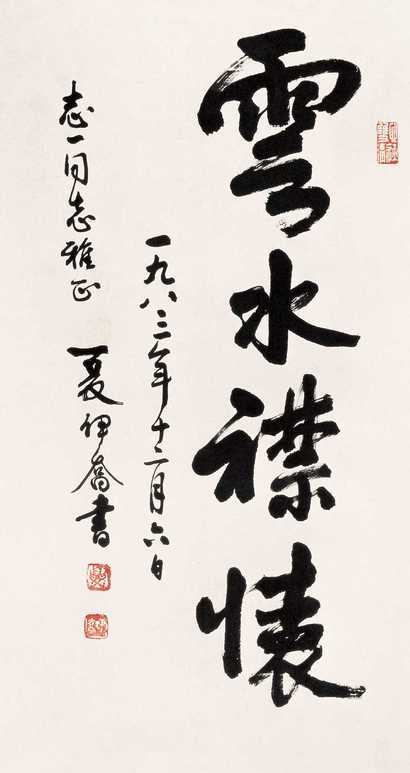 雲水襟懷
一九八三年十二月六日
志一同志雅正
夏伊喬書